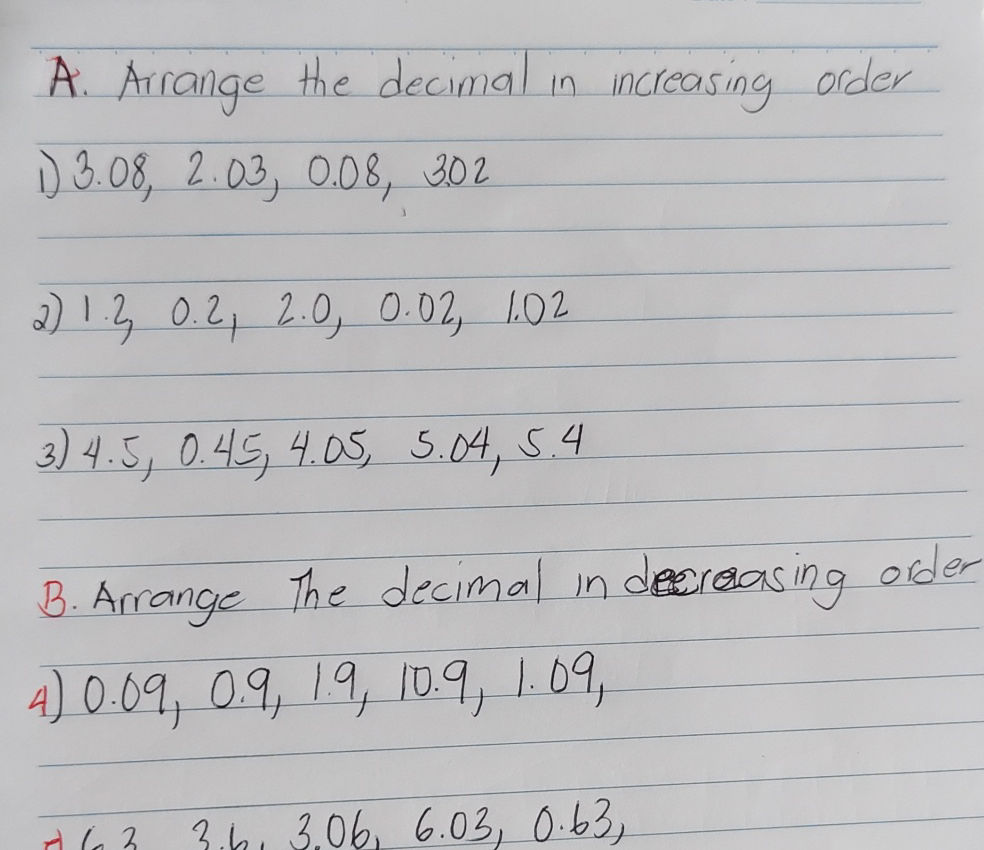 A. Arrange the decimal in increasing order
1) 3.08, 2.03, 0.08, 3.02
2) 1.2, 0.2, 2.0, 0.02, 1.02
3) 4.5, 0.45, 4.05, 5.04, 5.4
B. Arrange The decimal in decreasing order
4) 0.09, 0.9, 1.9, 10.9, 1.09,
6.3 3.6, 3.06, 6.03, 0.63,